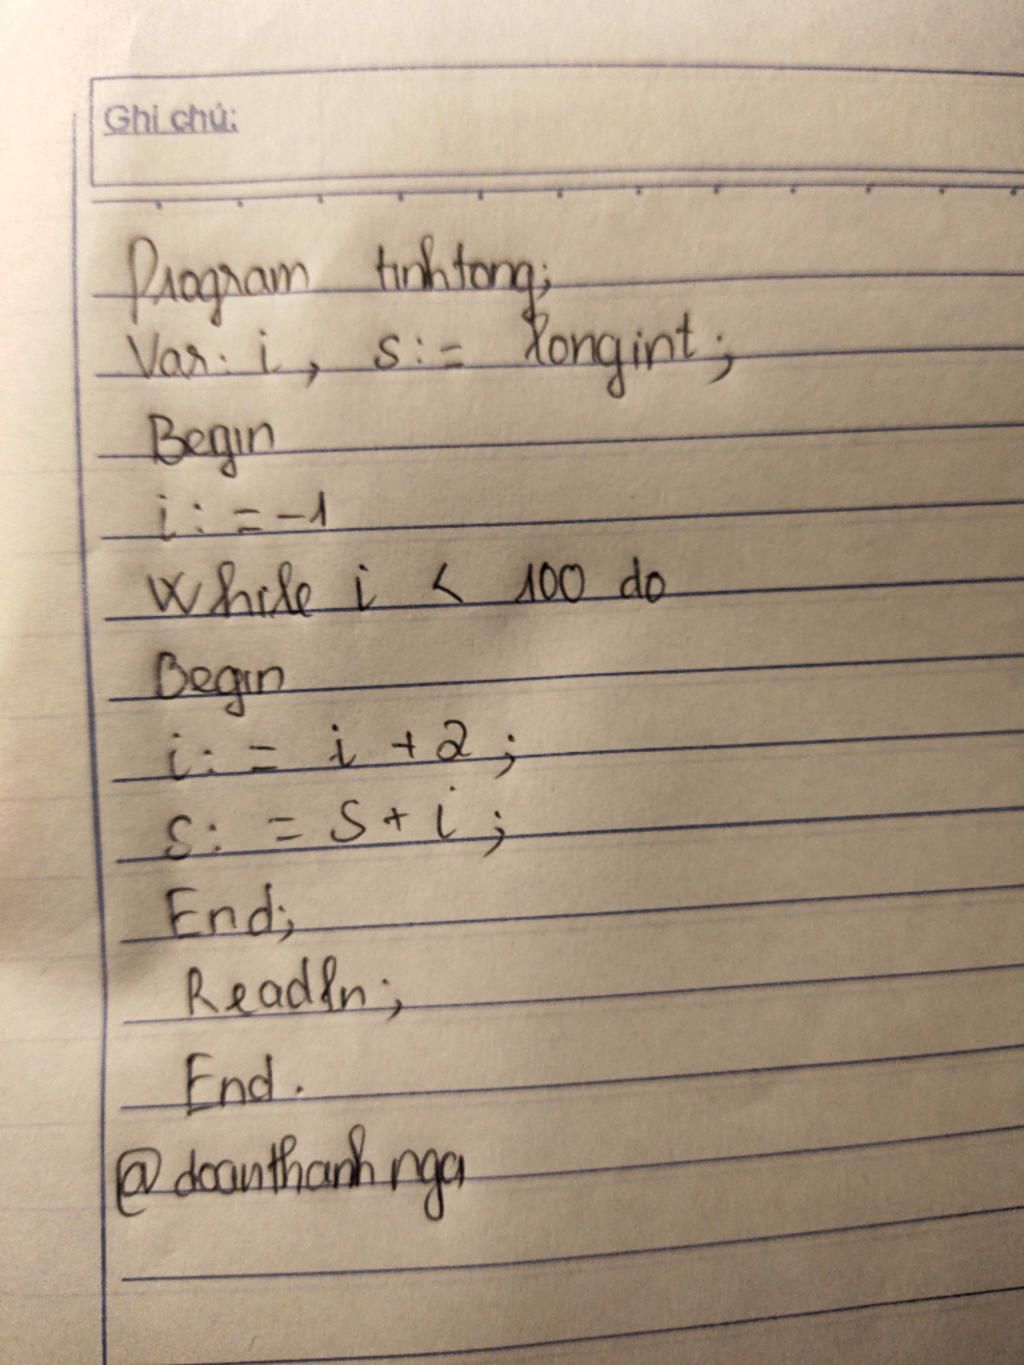 Ghi chú:
Program tinhtong;
Var: i, s:= longint;
Begin
i:=-1
While i < 100 do
Begin
i:= i +2;
s:= S+ i;
End;
Readln;
End.
@doanthanhnga